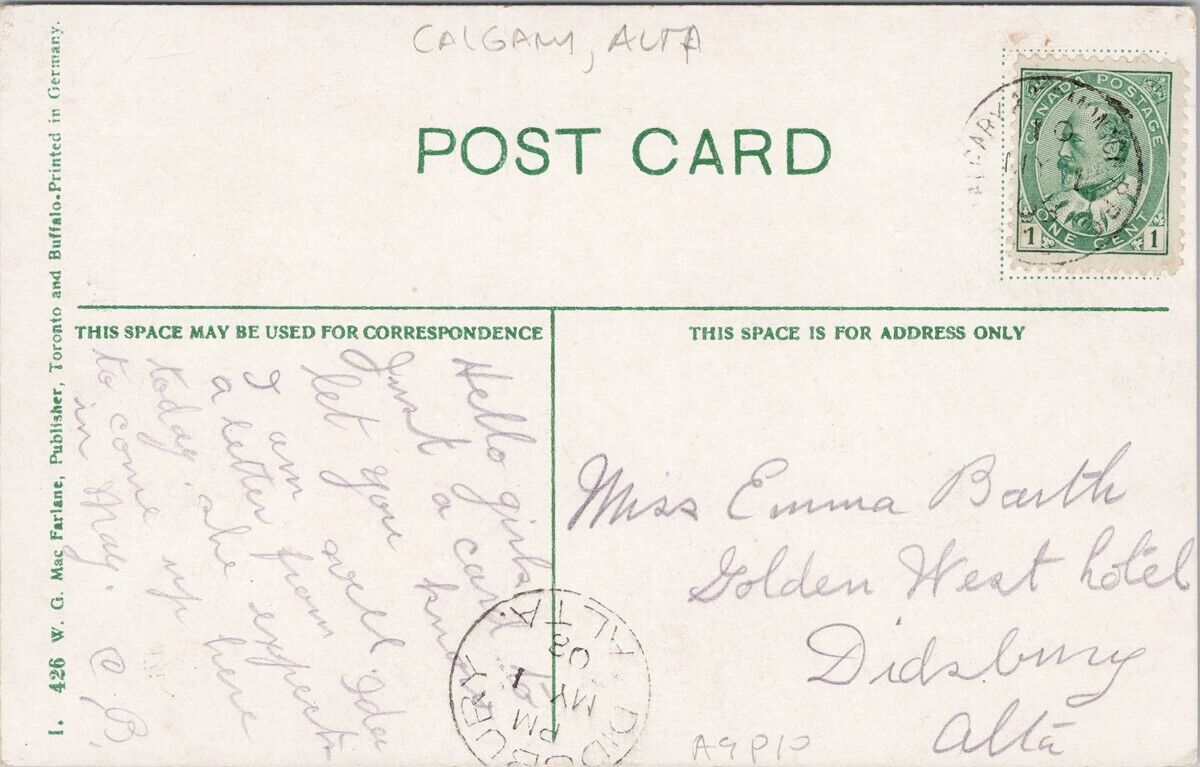 CALGARY, ALTA
POST CARD
CANADA POSTAGE
1 ONE CENT 1
THIS SPACE MAY BE USED FOR CORRESPONDENCE
THIS SPACE IS FOR ADDRESS ONLY
Hello girls
Just a card to
let you know
I am well Ida
a letter from
today, she expects
to come up here
in May. C. B.
Miss Emma Barth
Golden West hotel
Didsbury
Alta
DIDSBURY
PM
MY 1
08
ALTA.
A9P10
I. 426 W. G. Mac Farlane, Publisher, Toronto and Buffalo. Printed in Germany.